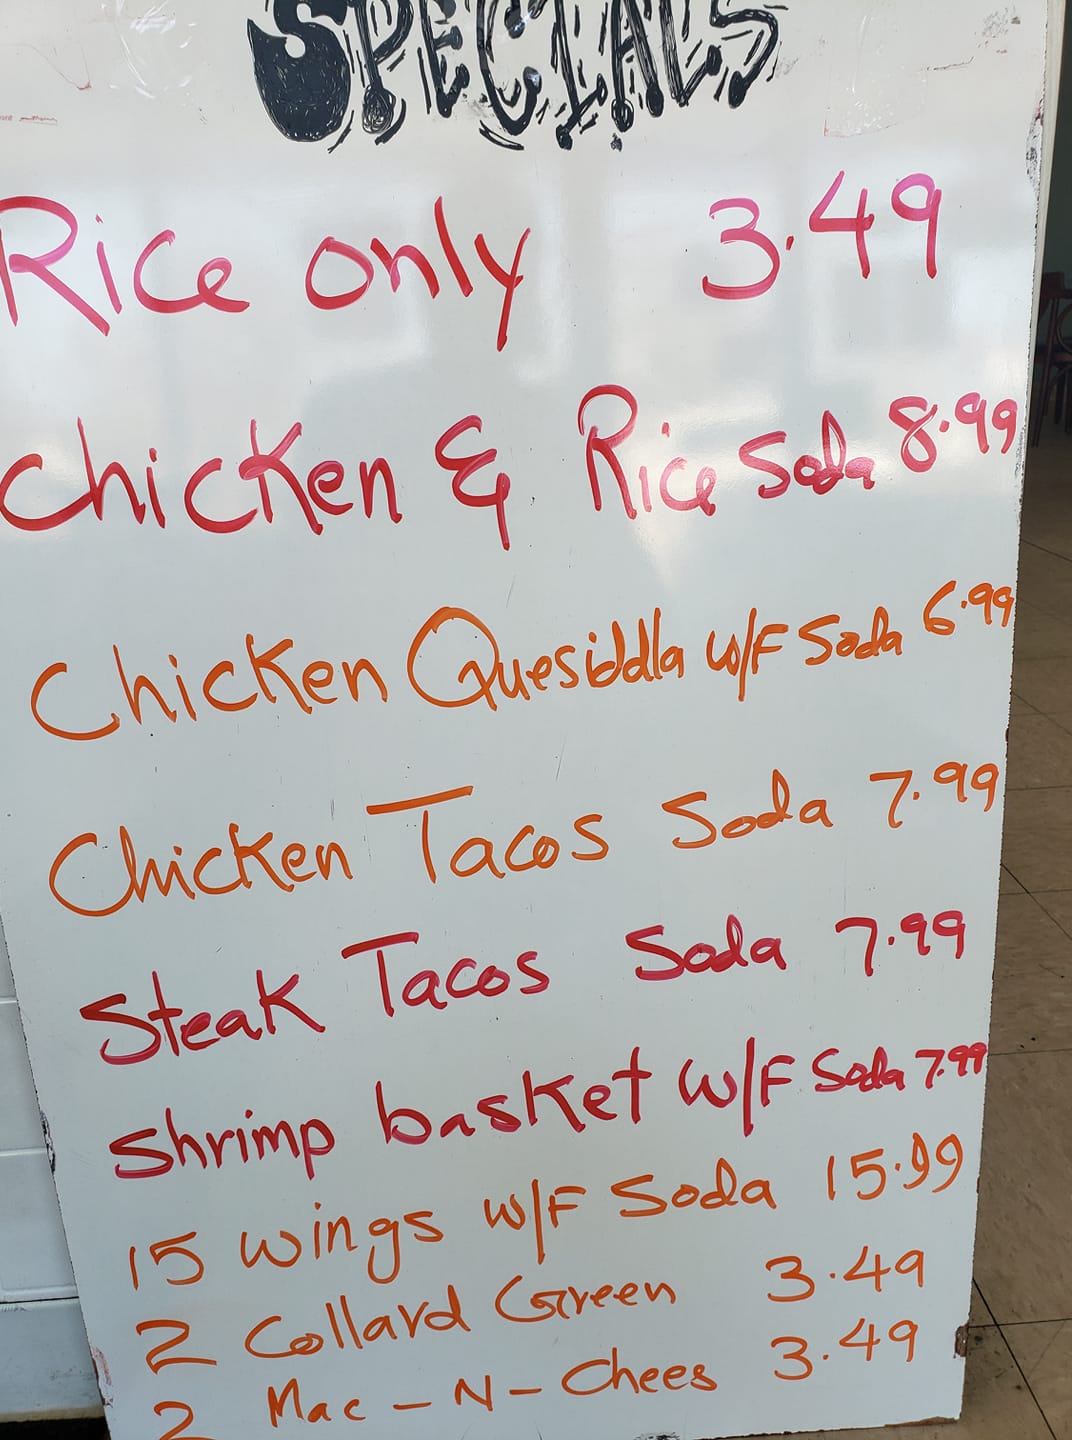 SPECIALS
Rice only 3.49
Chicken & Rice Soda 8.99
Chicken Quesiddla w/F Soda 6.99
Chicken Tacos Soda 7.99
Steak Tacos Soda 7.99
Shrimp basket w/F Soda 7.99
15 wings w/F Soda 15.99
2 Collard Green 3.49
2 Mac-N-Chees 3.49